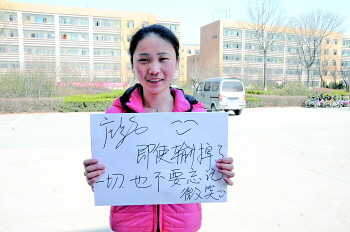 即使输掉了
一切 也不要忘记
微笑